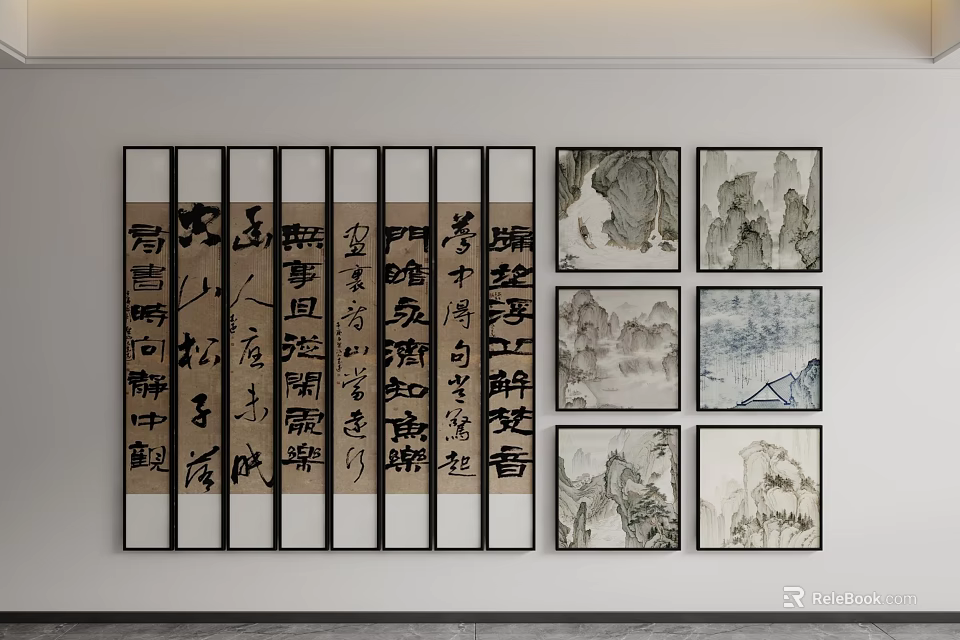 牖挹浮丘解梵音
夢中得句常驚起
門瞻永濟知魚樂
畫裏看山當遠行
無事且從閑處樂
幽人應未眠
空山松子落
有書時向靜中觀
ReleBook.com